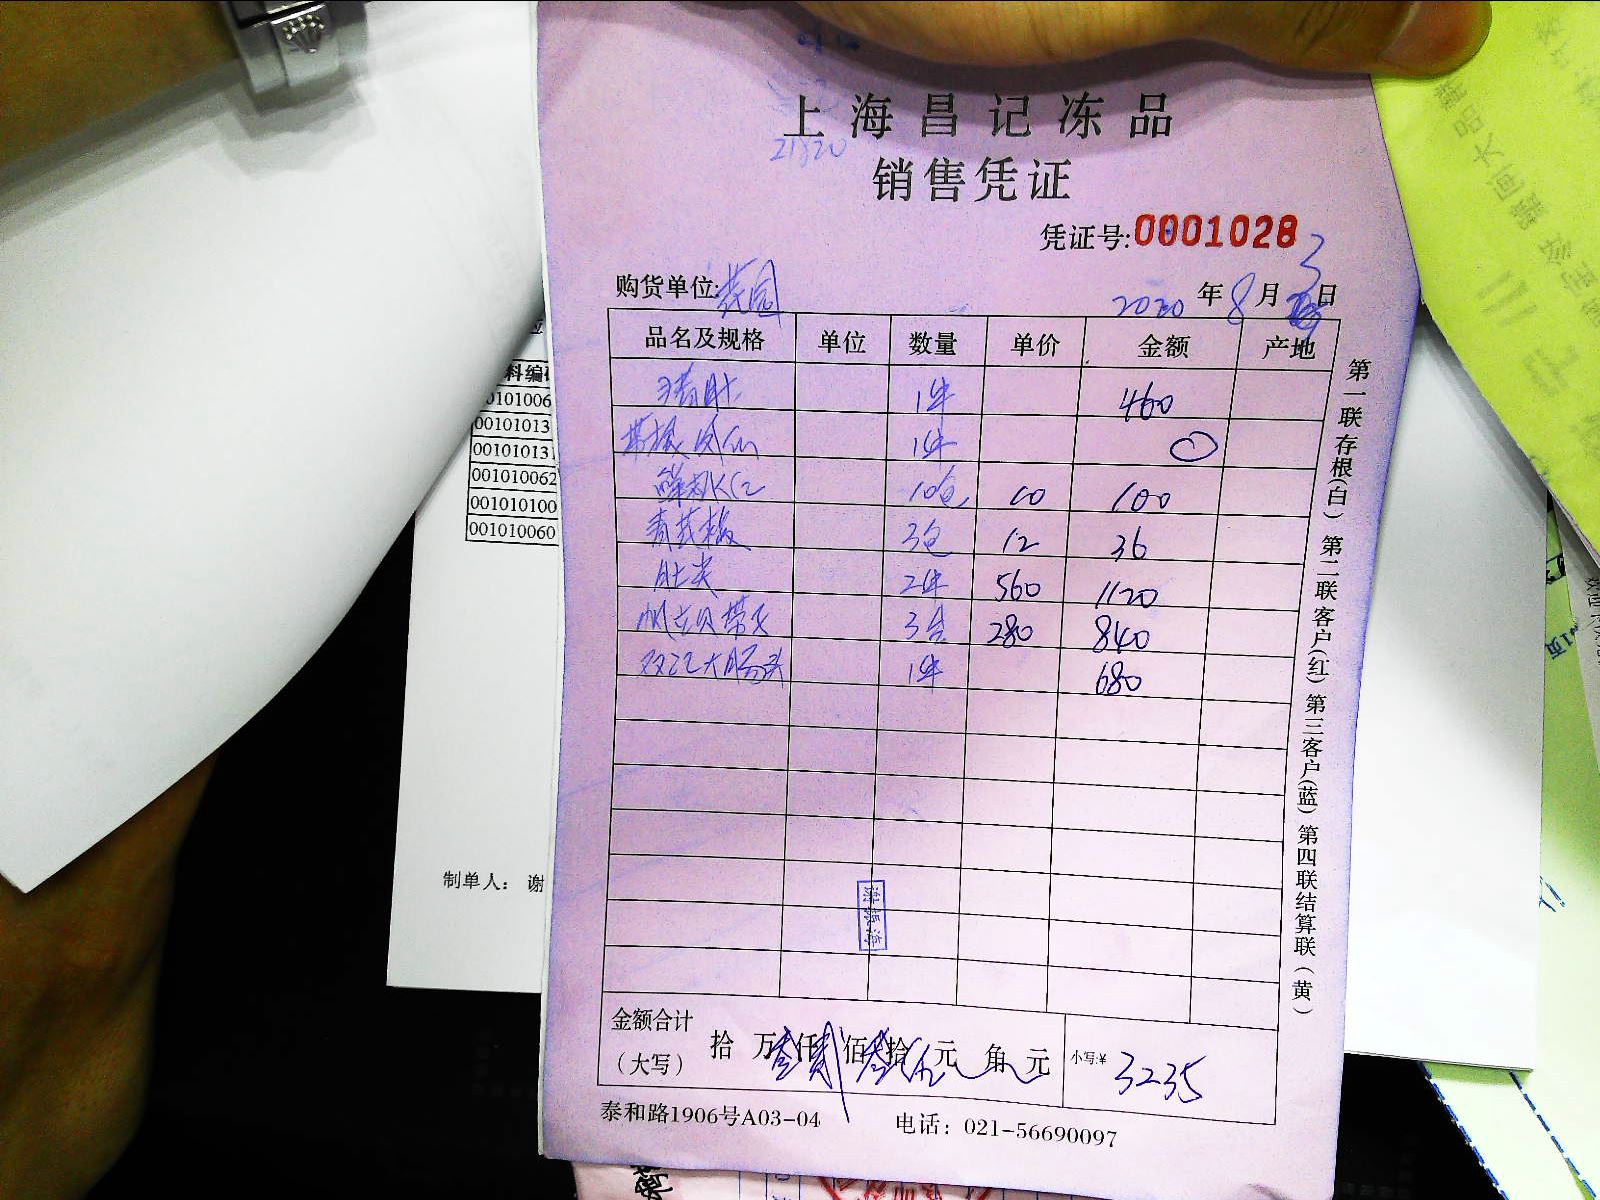 上海昌记冻品
21820
销售凭证
凭证号:0001028
购货单位: 2020年8月3日
品名及规格 单位 数量 单价 金额 产地
猪肚 1件 460
1件
10包 10 100
3包 12 36
肚尖 2件 560 1120
帆立贝带子 3合 280 840
双汇大肠头 1件 680
谢振海
金额合计
(大写) 拾 万叁仟贰佰叁拾伍元 角 元 小写:¥ 3235
泰和路1906号A03-04 电话: 021-56690097
第一联存根(白) 第二联客户(红) 第三客户(蓝) 第四联结算联(黄)
料编
0101006
00101013
001010131
001010062
001010100
001010060
制单人: 谢